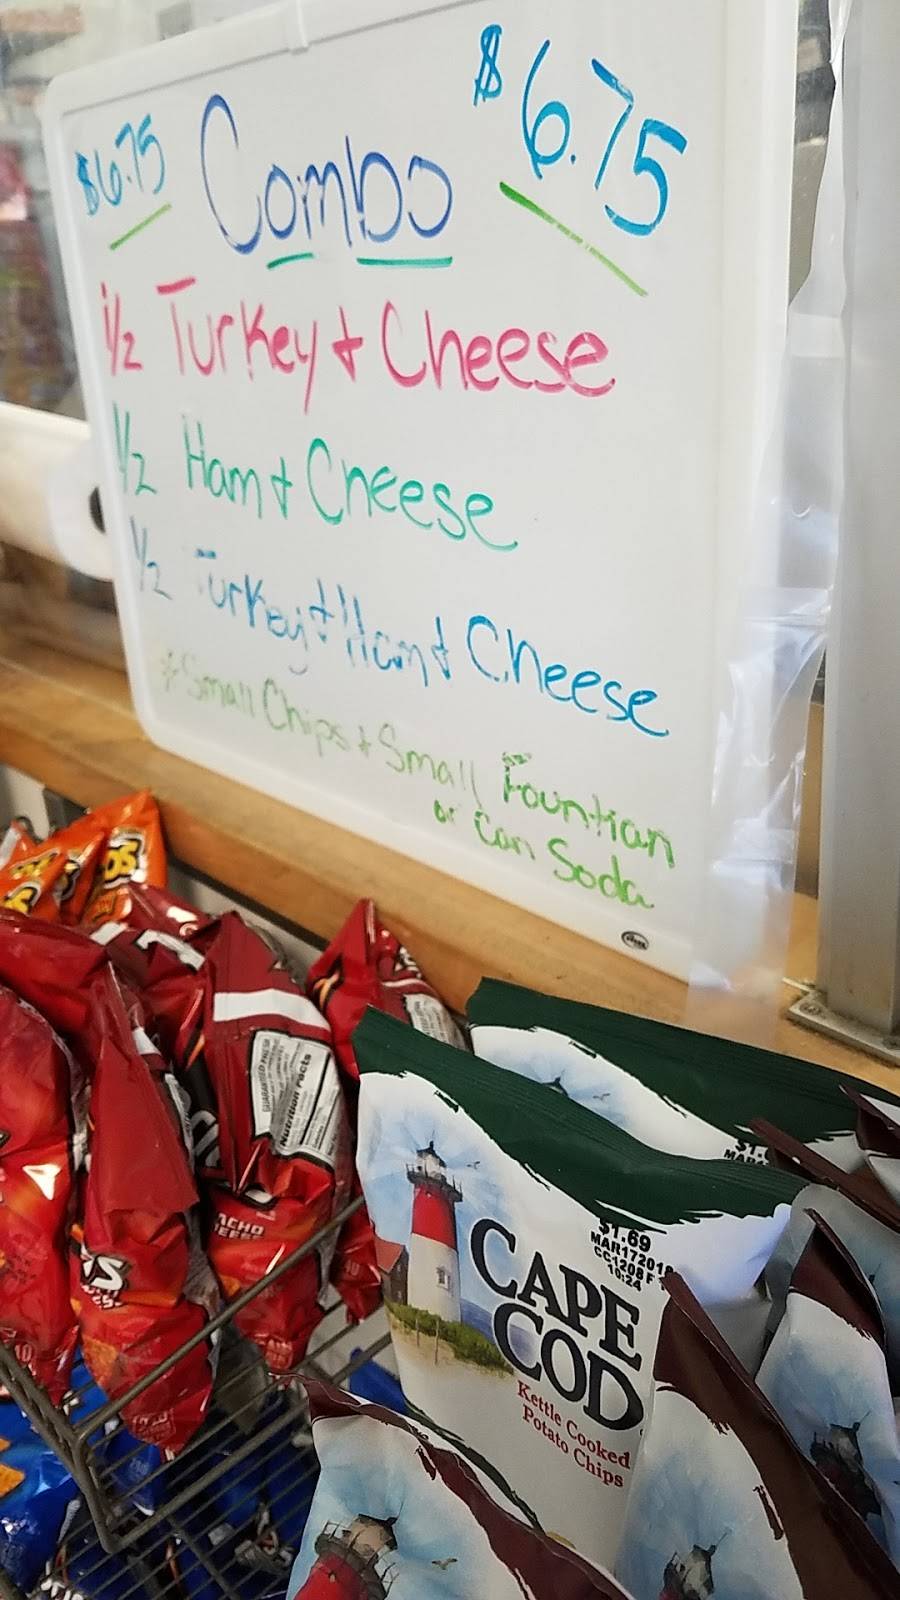 $6.75 Combo $6.75
1/2 Turkey + Cheese
1/2 Ham + Cheese
1/2 Turkey + Ham + Cheese
* Small Chips + Small Fountian
or Can Soda
GUARANTEED FRESH
Nutrition Facts
NACHO
CHEESE
$1.69
MAR172018
CC1208F
10:24
CAPE
COD
Kettle Cooked
Potato Chips